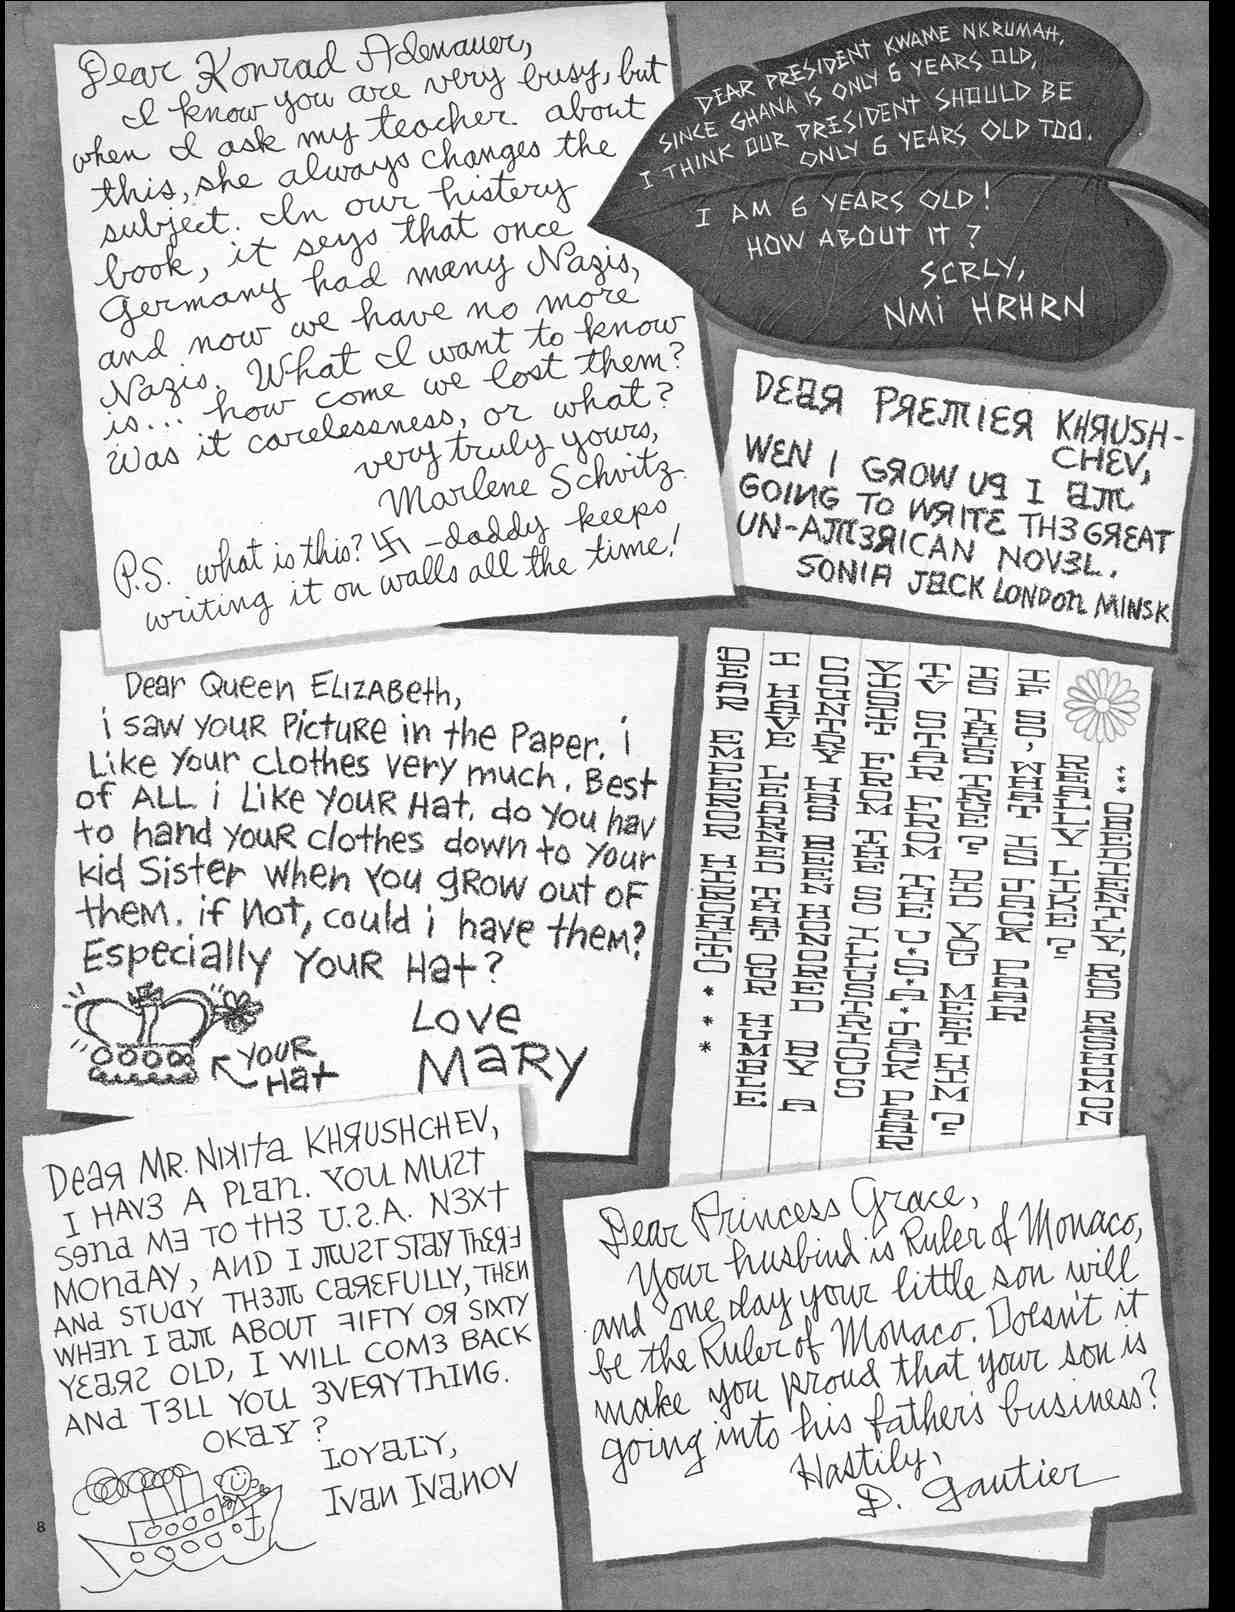 Dear Konrad Adenauer,
I know you are very busy, but
when I ask my teacher about
this, she always changes the
subject. In our histery
book, it seys that once
Germany had meny Nazis,
and now we have no more
Nazis. What I want to know
is... how come we lost them?
Was it carelessness, or what?
very truly yours,
Marlene Schvitz.
P.S. what is this? 卐 -daddy keeps
writing it on walls all the time!
DEAR PRESIDENT KWAME NKRUMAH,
SINCE GHANA IS ONLY 6 YEARS OLD,
I THINK OUR PRESIDENT SHOULD BE
ONLY 6 YEARS OLD TOO.
I AM 6 YEARS OLD!
HOW ABOUT IT?
SCRLY,
NMI HRHRN
DEAR PREMIER KHRUSH-
CHEV,
WEN I GROW UP I AM
GOING TO WRITE THE GREAT
UN-AMERICAN NOVEL.
SONIA JACK LONDON MINSK
Dear Queen ELIZABeth,
i SAW YOUR PictURe in the PaPeR. i
Like YOUR CLOthes veRy much. Best
of ALL i Like YOUR Hat. do You hav
to hand YOUR clothes down to YOUR
kid Sister when You gRow out oF
them. if Not, could i have them?
Especially YouR Hat?
YOUR
Hat
Love
MARY
DEAR EMPEROR HIROHITO * * *
I HAVE LEARNED THAT OUR HUMBLE
COUNTRY HAS BEEN HONORED BY A
VISIT FROM THE SO ILLUSTRIOUS
TV STAR FROM THE U.S.A. JACK PAAR
IS THIS TRUE? DID YOU MEET HIM?
IF SO, WHAT IS JACK PAAR
REALLY LIKE?
... OBEDIENTLY, RESHIMON
DEAR MR. NIKITA KHRUSHCHEV,
I HAVE A PLAN. YOU MUST
SEND ME TO THE U.S.A. NEXT
MONDAY, AND I MUST STAY THERE
AND STUDY THEM CAREFULLY, THEN
WHEN I AM ABOUT FIFTY OR SIXTY
YEARS OLD, I WILL COME BACK
AND TELL YOU EVERYTHING.
OKAY?
LOYALLY,
IVAN IVANOV
Dear Princess Grace,
Your husbind is Ruler of Monaco,
and one day your little son will
be the Ruler of Monaco. Doesn't it
make you proud that your son is
going into his father's business?
Hastily,
D. Gautier
8